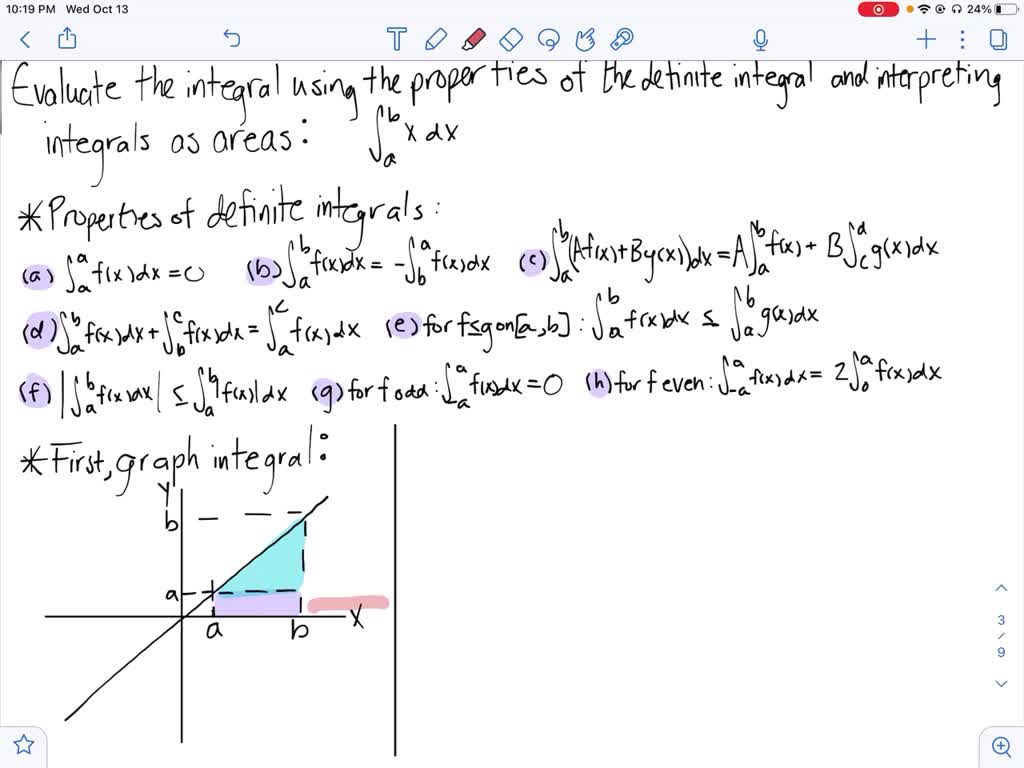 10:19 PM Wed Oct 13
24%
Evaluate the integral using the properties of the definite integral and interpreting
integrals as areas: ∫_a^b x dx
*Properties of definite integrals:
(a) ∫_a^a f(x)dx = 0 (b) ∫_a^b f(x)dx = -∫_b^a f(x)dx (c) ∫_a^b (Af(x)+By(x))dx = A∫_a^b f(x) + B∫_c^d g(x)dx
(d) ∫_a^b f(x)dx + ∫_b^c f(x)dx = ∫_a^c f(x)dx (e) for f≤g on [a,b]: ∫_a^b f(x)dx ≤ ∫_a^b g(x)dx
(f) |∫_a^b f(x)dx| ≤ ∫_a^b |f(x)|dx (g) for f odd: ∫_-a^a f(x)dx = 0 (h) for f even: ∫_-a^a f(x)dx = 2∫_0^a f(x)dx
*First, graph integral:
y
b
a
a b x
3
/
9